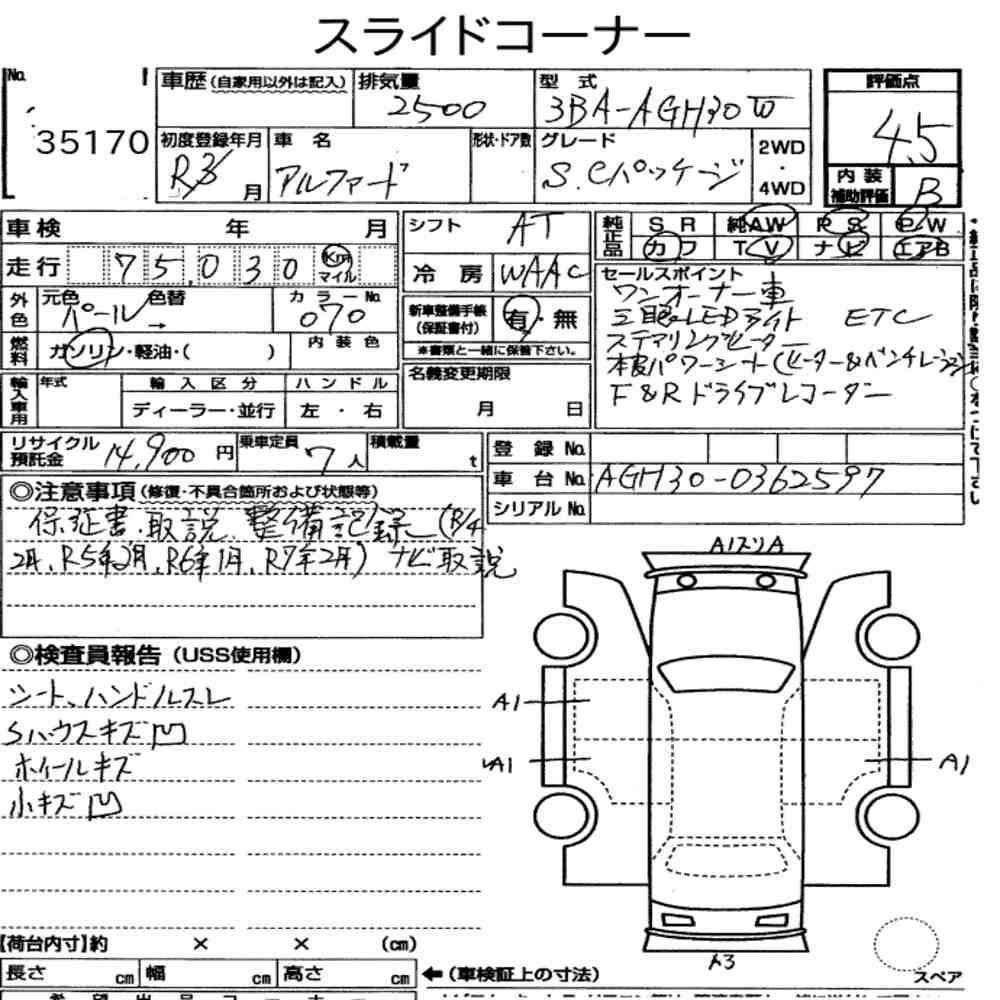 スライドコーナー
No.
35170
車歴 (自家用以外は記入)
排気量
2500
型 式
3BA-AGH30W
評価点
4.5
初度登録年月
R3 月
車 名
アルファード
形状・ドア数
グレード
S.Cパッケージ
2WD
・
4WD
内 装
補助評価
B
車検 年 月
走行 75,030 Km マイル
シフト
AT
冷 房
WAAC
純正品
S R 純AW P S P W
カワ T V ナビ エアB
外色
元色 色替
パール →
カラーNo.
070
燃料
ガソリン・軽油・( )
内 装 色
新車整備手帳
(保証書付)
有・無
※書類と一緒に保管下さい。
セールスポイント
ワンオーナー車
三眼LEDライト ETC
ステアリングヒーター
本革パワーシート(ヒーター&ベンチレーション
F&Rドライブレコーダー
輸入車用
年式
輸 入 区 分
ディーラー・並行
ハ ン ド ル
左 ・ 右
名義変更期限
月 日
リサイクル
預託金
14,900 円
乗車定員
7 人
積載量
t
登 録 No.
車 台 No. AGH30-0362597
シリアル No.
◎注意事項 (修復・不具合箇所および状態等)
保証書.取説.整備記録(R/4
2月,R5年2月,R6年1月,R7年2月) ナビ取説
◎検査員報告 (USS使用欄)
シート、ハンドルスレ
Sハウスキズ凹
ホイールキズ
小キズ凹
A1スリA
A1
A1
A1
A3
スペア
【荷台内寸】約 × × (cm)
長さ cm 幅 cm 高さ cm
←(車検証上の寸法)